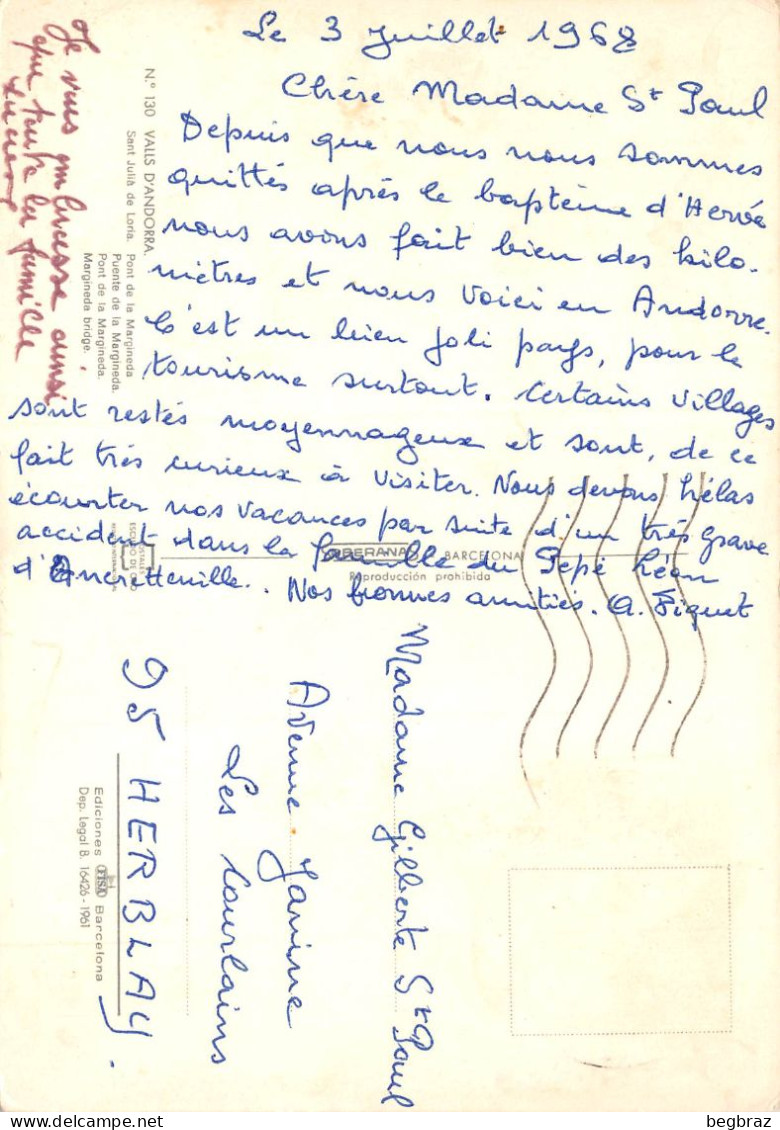 Le 3 Juillet 1968
Chère Madame St Paul
Depuis que nous nous sommes
quittés après le baptême d'Hervé
nous avons fait bien des kilo-
mètres et nous voici en Andorre.
C'est un bien joli pays, pour le
tourisme surtout. Certains villages
sont restés moyennageux et sont, de ce
fait très curieux à visiter. Nous devons hélas
écourter nos vacances par suite d'un très grave
accident dans la famille du Pepé Léon
d'Ancretteville. Nos bonnes amitiés. A. Piquet
Je vous embrasse ainsi
que toute la famille
N.º 130 VALLS D'ANDORRA.
Sant Julià de Loria. Pont de la Margineda
Puente de la Margineda.
Pont de la Margineda.
Margineda bridge.
BERANA BARCELONA
Reproducción prohibida
ESCUDO DE ORO
Madame Gilberte St Paul
Avenue Janine
Les Courlains
95 HERBLAY.
Ediciones FISA Barcelona
Dep. Legal B. 16426-1961
begbraz